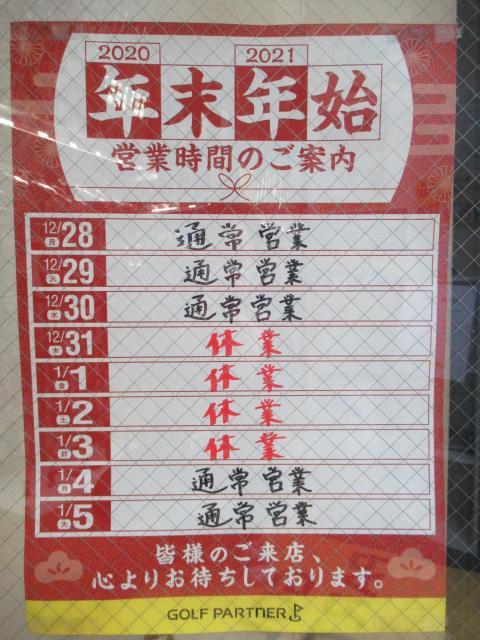 2020 2021
年末年始
営業時間のご案内
12/28 月 通常営業
12/29 火 通常営業
12/30 水 通常営業
12/31 木 休業
1/1 金 休業
1/2 土 休業
1/3 日 休業
1/4 月 通常営業
1/5 火 通常営業
皆様のご来店、
心よりお待ちしております。
GOLF PARTNER